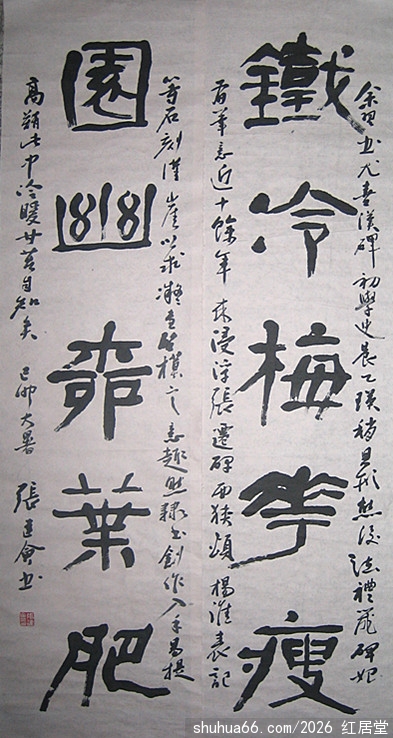 鐵冷梅花瘦
余習書尤喜漢碑初學史晨乙瑛稍具形然後法禮器碑
筆意近十餘年來浸淫張遷碑西狹頌楊淮表記
園幽葉肥
等石刻漢崖以求凝重之意趣然隸書創作入手易提
高難此中冷暖甘苦自知矣 己卯大暑 張建會書
shuhua66.com/2026 红居堂